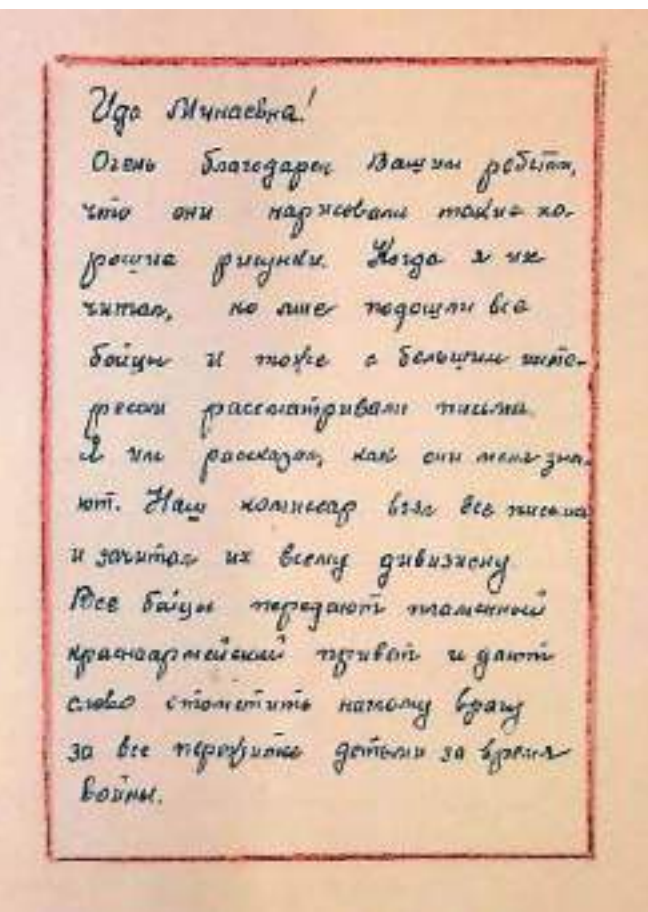 Ида Минаевна!
Очень благодарен Вашим ребятам,
что они нарисовали такие хо-
рошие рисунки. Когда я их
читал, ко мне подошли все
бойцы и тоже с большим инте-
ресом рассматривали письма.
Я им рассказал, как они меня зна-
ют. Наш комиссар взял все письма
и зачитал их всему дивизиону
Все бойцы передают пламенный
красноармейский привет и дают
слово отомстить наглому врагу
за все пережитые детьми за время
войны.